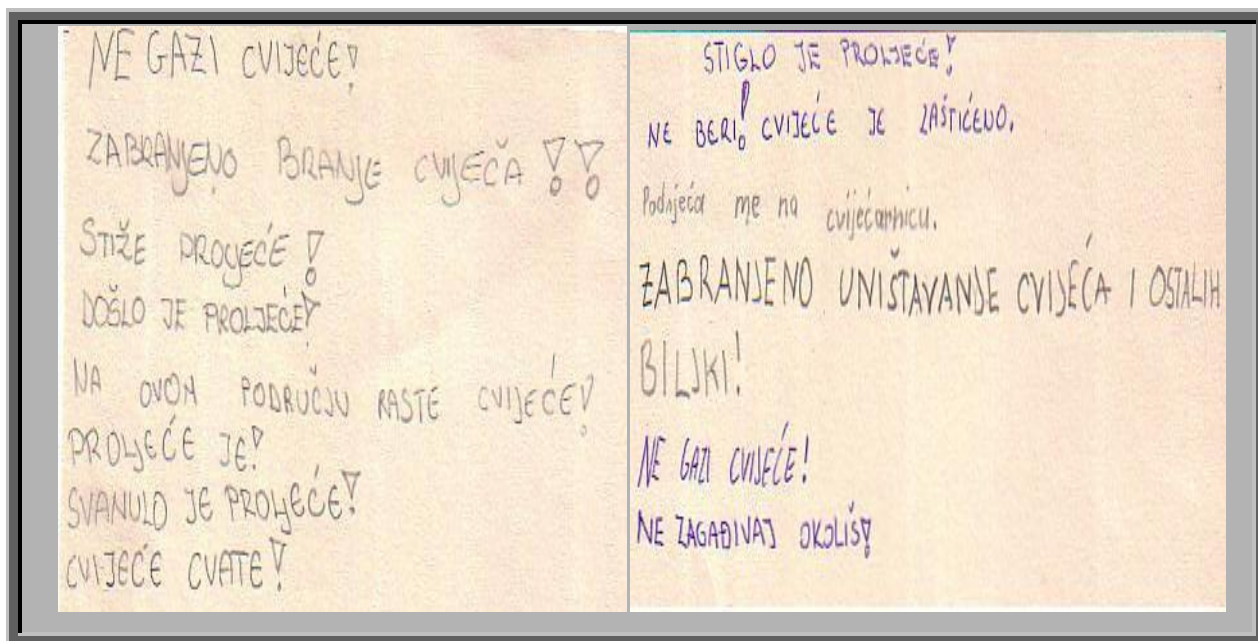 NE GAZI CVIJEĆE!
ZABRANJENO BRANJE CVIJEČA!!
STIŽE PROLJEĆE!
DOŠLO JE PROLJEĆE!
NA OVOM PODRUČJU RASTE CVIJEĆE!
PROLJEĆE JE!
SVANULO JE PROLJEĆE!
CVIJEĆE CVATE!
STIGLO JE PROLJEĆE!
NE BERI! CVIJEĆE JE ZAŠTIĆENO.
Podsjeća me na cvijećarnicu.
ZABRANJENO UNIŠTAVANJE CVIJEĆA I OSTALIH
BILJKI!
NE GAZI CVIJEĆE!
NE ZAGAĐIVAJ OKOLIŠ!